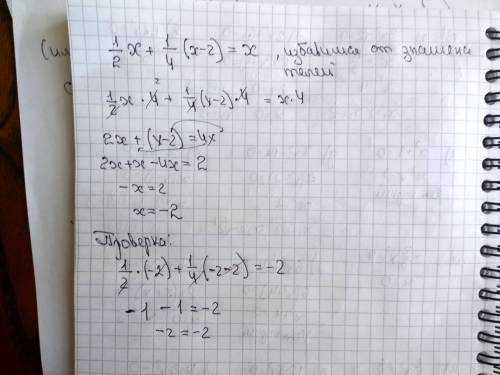 1/2 x + 1/4 (x-2) = x , избавимся от знамена
телей
1/2 x · 4 + 1/4 (x-2) · 4 = x · 4
2
2x + (x-2) = 4x
2x+x-4x = 2
-x = 2
x = -2
Проверка:
1/2 · (-2) + 1/4 (-2-2) = -2
-1 -1 = -2
-2 = -2